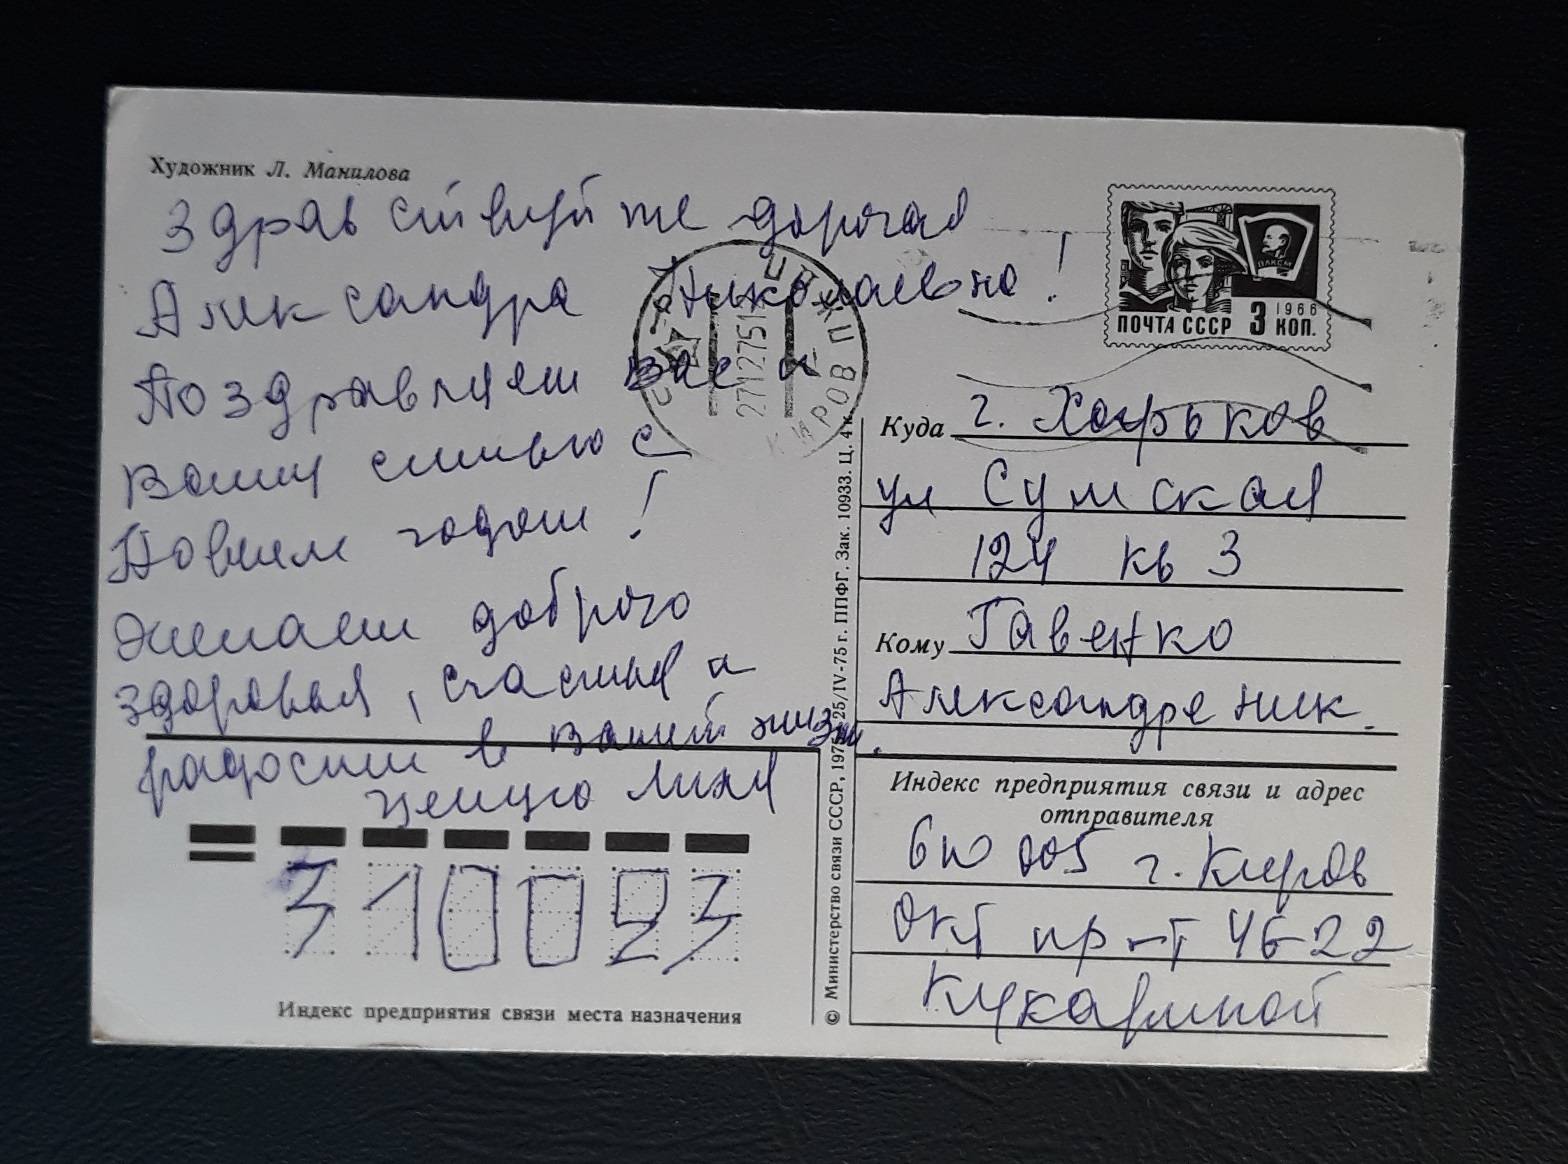 Художник Л. Манилова
Здравствуйте дорогая
Александра Николаевна!
Поздравляем вас и
вашу семью с
Новым годом!
Желаем доброго
здоровья, счастья и
радости в вашей жизни.
целую Лиля
ПОЧТА СССР 3 КОП.
1966
ВЛКСМ
271275
КИРОВ
Куда г. Харьков
ул Сумская
124 кв 3
Кому Гавенко
Александре Ник.
Индекс предприятия связи и адрес
отправителя
610005 г. Киров
Окт пр-т 46-22
310023
Индекс предприятия связи места назначения
© Министерство связи СССР, 1975. 25/IV-75 г. ППФГ. Зак. 10933. Ц. 4 к.